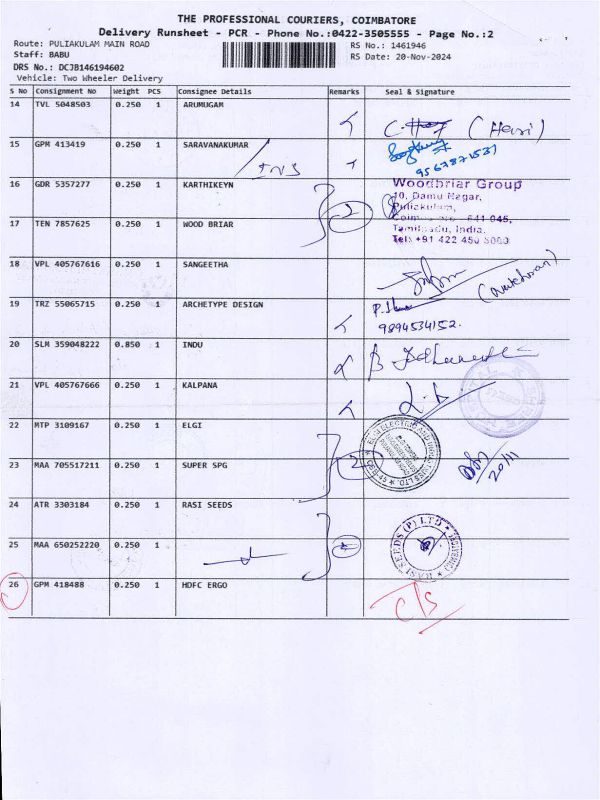 THE PROFESSIONAL COURIERS, COIMBATORE
Delivery Runsheet - PCR - Phone No.:0422-3505555 - Page No.:2
Route: PULIAKULAM MAIN ROAD
Staff: BABU
DRS No.: DCJB146194602
Vehicle: Two Wheeler Delivery
RS No.: 1461946
RS Date: 20-Nov-2024
S No Consignment No Weight PCS Consignee Details Remarks Seal & Signature
14 TVL 5048503 0.250 1 ARUMUGAM
(Hari)
15 GPM 413419 0.250 1 SARAVANAKUMAR
9567871531
16 GDR 5357277 0.250 1 KARTHIKEYN
Woodbriar Group
10, Damu Nagar,
Puliakulam,
Coimbatore - 641 045,
Tamilnadu, India.
Tel: +91 422 450 5000
17 TEN 7857625 0.250 1 WOOD BRIAR 2
18 VPL 405767616 0.250 1 SANGEETHA
19 TRZ 55065715 0.250 1 ARCHETYPE DESIGN
9894534152.
20 SLM 359048222 0.850 1 INDU
21 VPL 405767666 0.250 1 KALPANA
22 MTP 3109167 0.250 1 ELGI
23 MAA 705517211 0.250 1 SUPER SPG 2
20/11
24 ATR 3303184 0.250 1 RASI SEEDS
RASI SEEDS (P) LTD
25 MAA 650252220 0.250 1
26 GPM 418488 0.250 1 HDFC ERGO
C/S